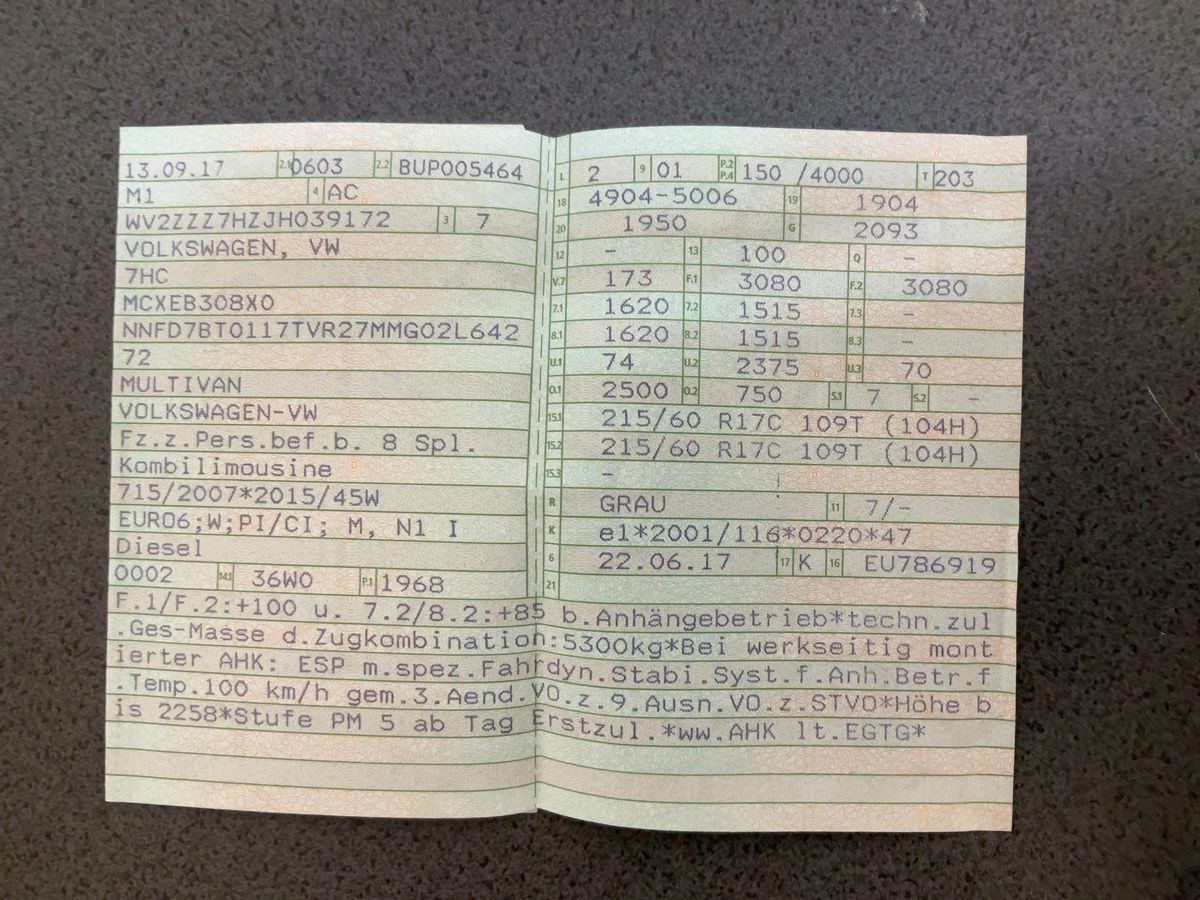 13.09.17 2.1 0603 2.2 BUP005464
M1 4 AC
WV2ZZZ7HZJH039172 3 7
VOLKSWAGEN, VW
7HC
MCXEB308X0
NNFD7BT0117TVR27MMG02L642
72
MULTIVAN
VOLKSWAGEN-VW
Fz.z.Pers.bef.b. 8 Spl.
Kombilimousine
715/2007*2015/45W
EURO6;W;PI/CI; M, N1 I
Diesel
0002 14.1 36W0 P.1 1968
L 2 9 01 P.2 P.4 150 /4000 T 203
18 4904-5006 19 1904
20 1950 G 2093
12 – 13 100 Q –
V.7 173 F.1 3080 F.2 3080
7.1 1620 7.2 1515 7.3 –
8.1 1620 8.2 1515 8.3 –
U.1 74 U.2 2375 U.3 70
O.1 2500 O.2 750 S.1 7 S.2 –
15.1 215/60 R17C 109T (104H)
15.2 215/60 R17C 109T (104H)
15.3 –
R GRAU 11 7/-
K e1*2001/116*0220*47
6 22.06.17 17 K 16 EU786919
21
F.1/F.2:+100 u. 7.2/8.2:+85 b.Anhängebetrieb*techn.zul
.Ges-Masse d.Zugkombination:5300kg*Bei werkseitig mont
ierter AHK: ESP m.spez.Fahrdyn.Stabi.Syst.f.Anh.Betr.f
.Temp.100 km/h gem.3.Aend.VO.z.9.Ausn.VO.z.STVO*Höhe b
is 2258*Stufe PM 5 ab Tag Erstzul.*ww.AHK lt.EGTG*